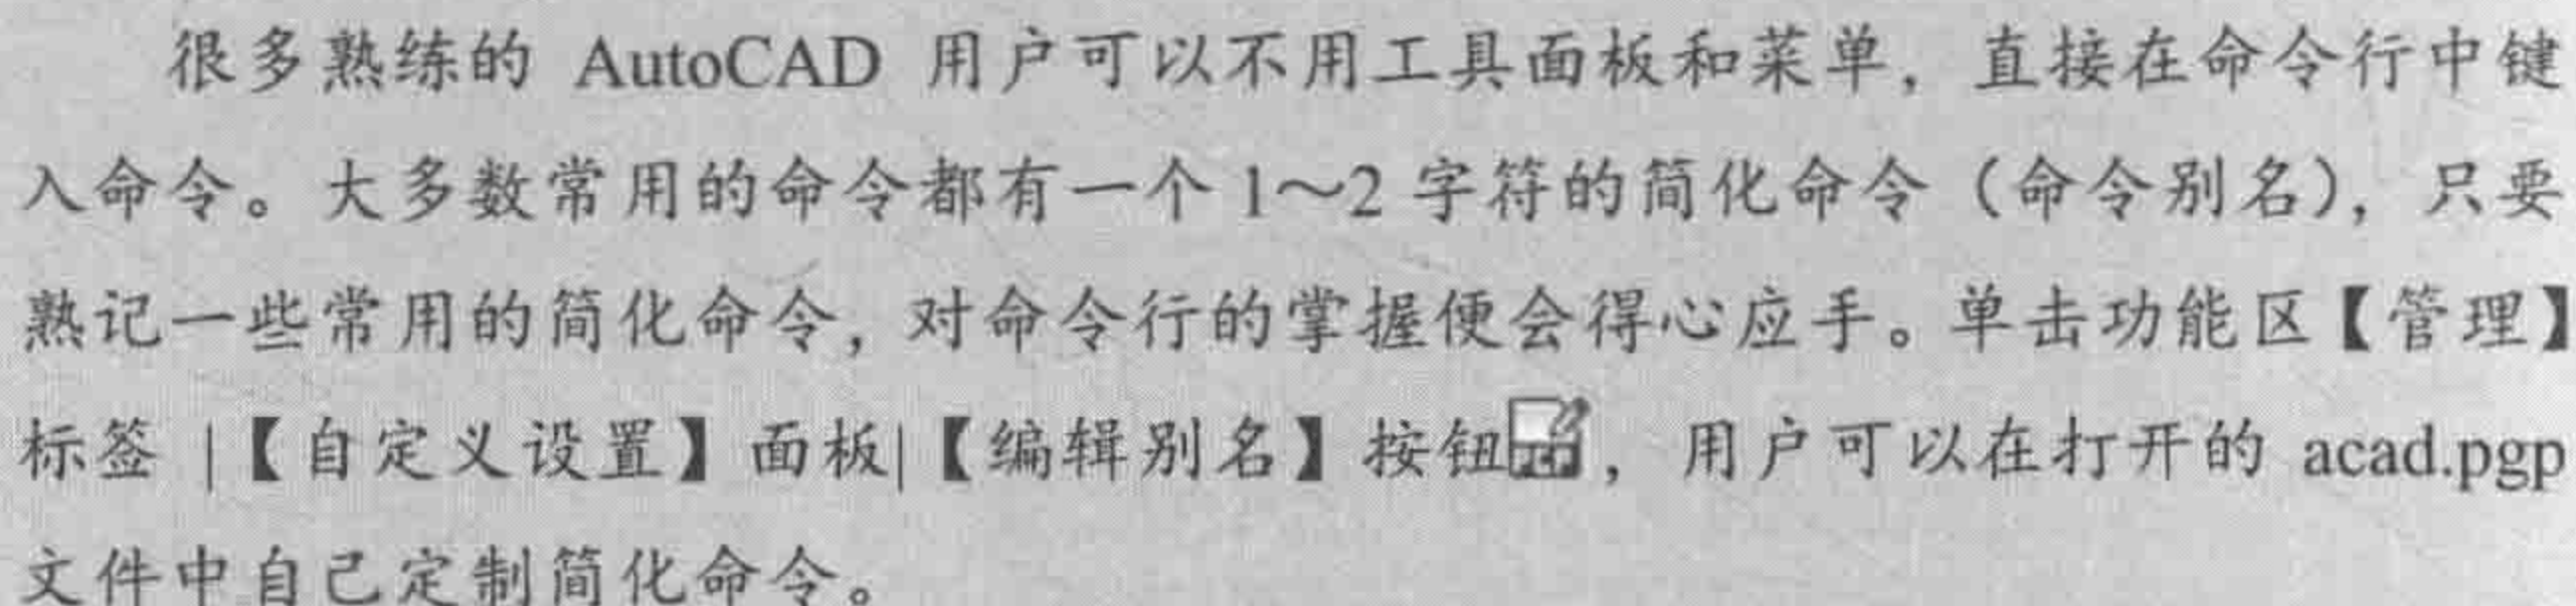 很多熟练的 AutoCAD 用户可以不用工具面板和菜单，直接在命令行中键
入命令。大多数常用的命令都有一个 1～2 字符的简化命令（命令别名），只要
熟记一些常用的简化命令，对命令行的掌握便会得心应手。单击功能区【管理】
标签 |【自定义设置】面板|【编辑别名】按钮，用户可以在打开的 acad.pgp
文件中自己定制简化命令。